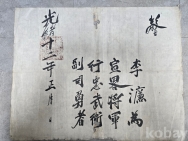 李濂萬
宣畧將軍
行忠武衛
副司勇者
光緒十二年三月 日
kobay